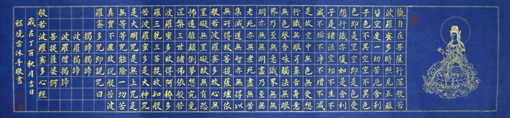 觀自在菩薩行深般若
波羅蜜多時照見五蘊
皆空度一切苦厄舍利
子色不異空空不異色
色即是空空即是色受
想行識亦復如是舍利
子是諸法空相不生不
滅不垢不淨不增不減
是故空中無色無受想
行識無眼耳鼻舌身意
無色聲香味觸法無眼
界乃至無意識界無無
明亦無無明盡乃至無
老死亦無老死盡無苦
集滅道無智亦無得以
無所得故菩提薩埵依
般若波羅蜜多故心無
罣礙無罣礙故無有恐
怖遠離顛倒夢想究竟
涅槃三世諸佛依般若
波羅蜜多故得阿耨多
羅三藐三菩提故知般
若波羅蜜多是大神咒
是大明咒是無上咒是
無等等咒能除一切苦
真實不虛故說般若波
羅蜜多咒即說咒曰
揭諦揭諦
波羅揭諦
波羅僧揭諦
菩提薩婆訶
般若波羅蜜多心經
歲在丁酉秋月吉日
沐手敬書